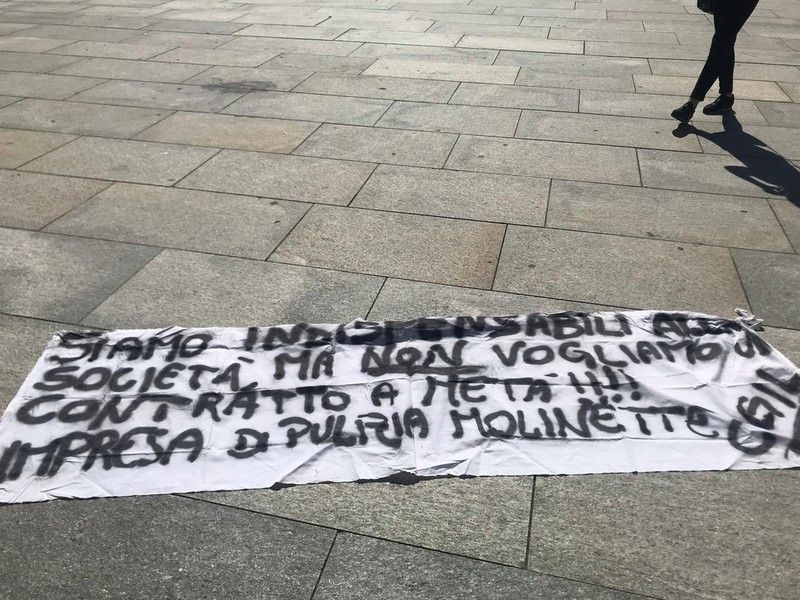 SIAMO INDISPENSABILI ALLA
SOCIETÀ MA NON VOGLIAMO
CONTRATTO A METÀ !!!!
IMPRESA DI PULIZIA MOLINETTE
CGIL